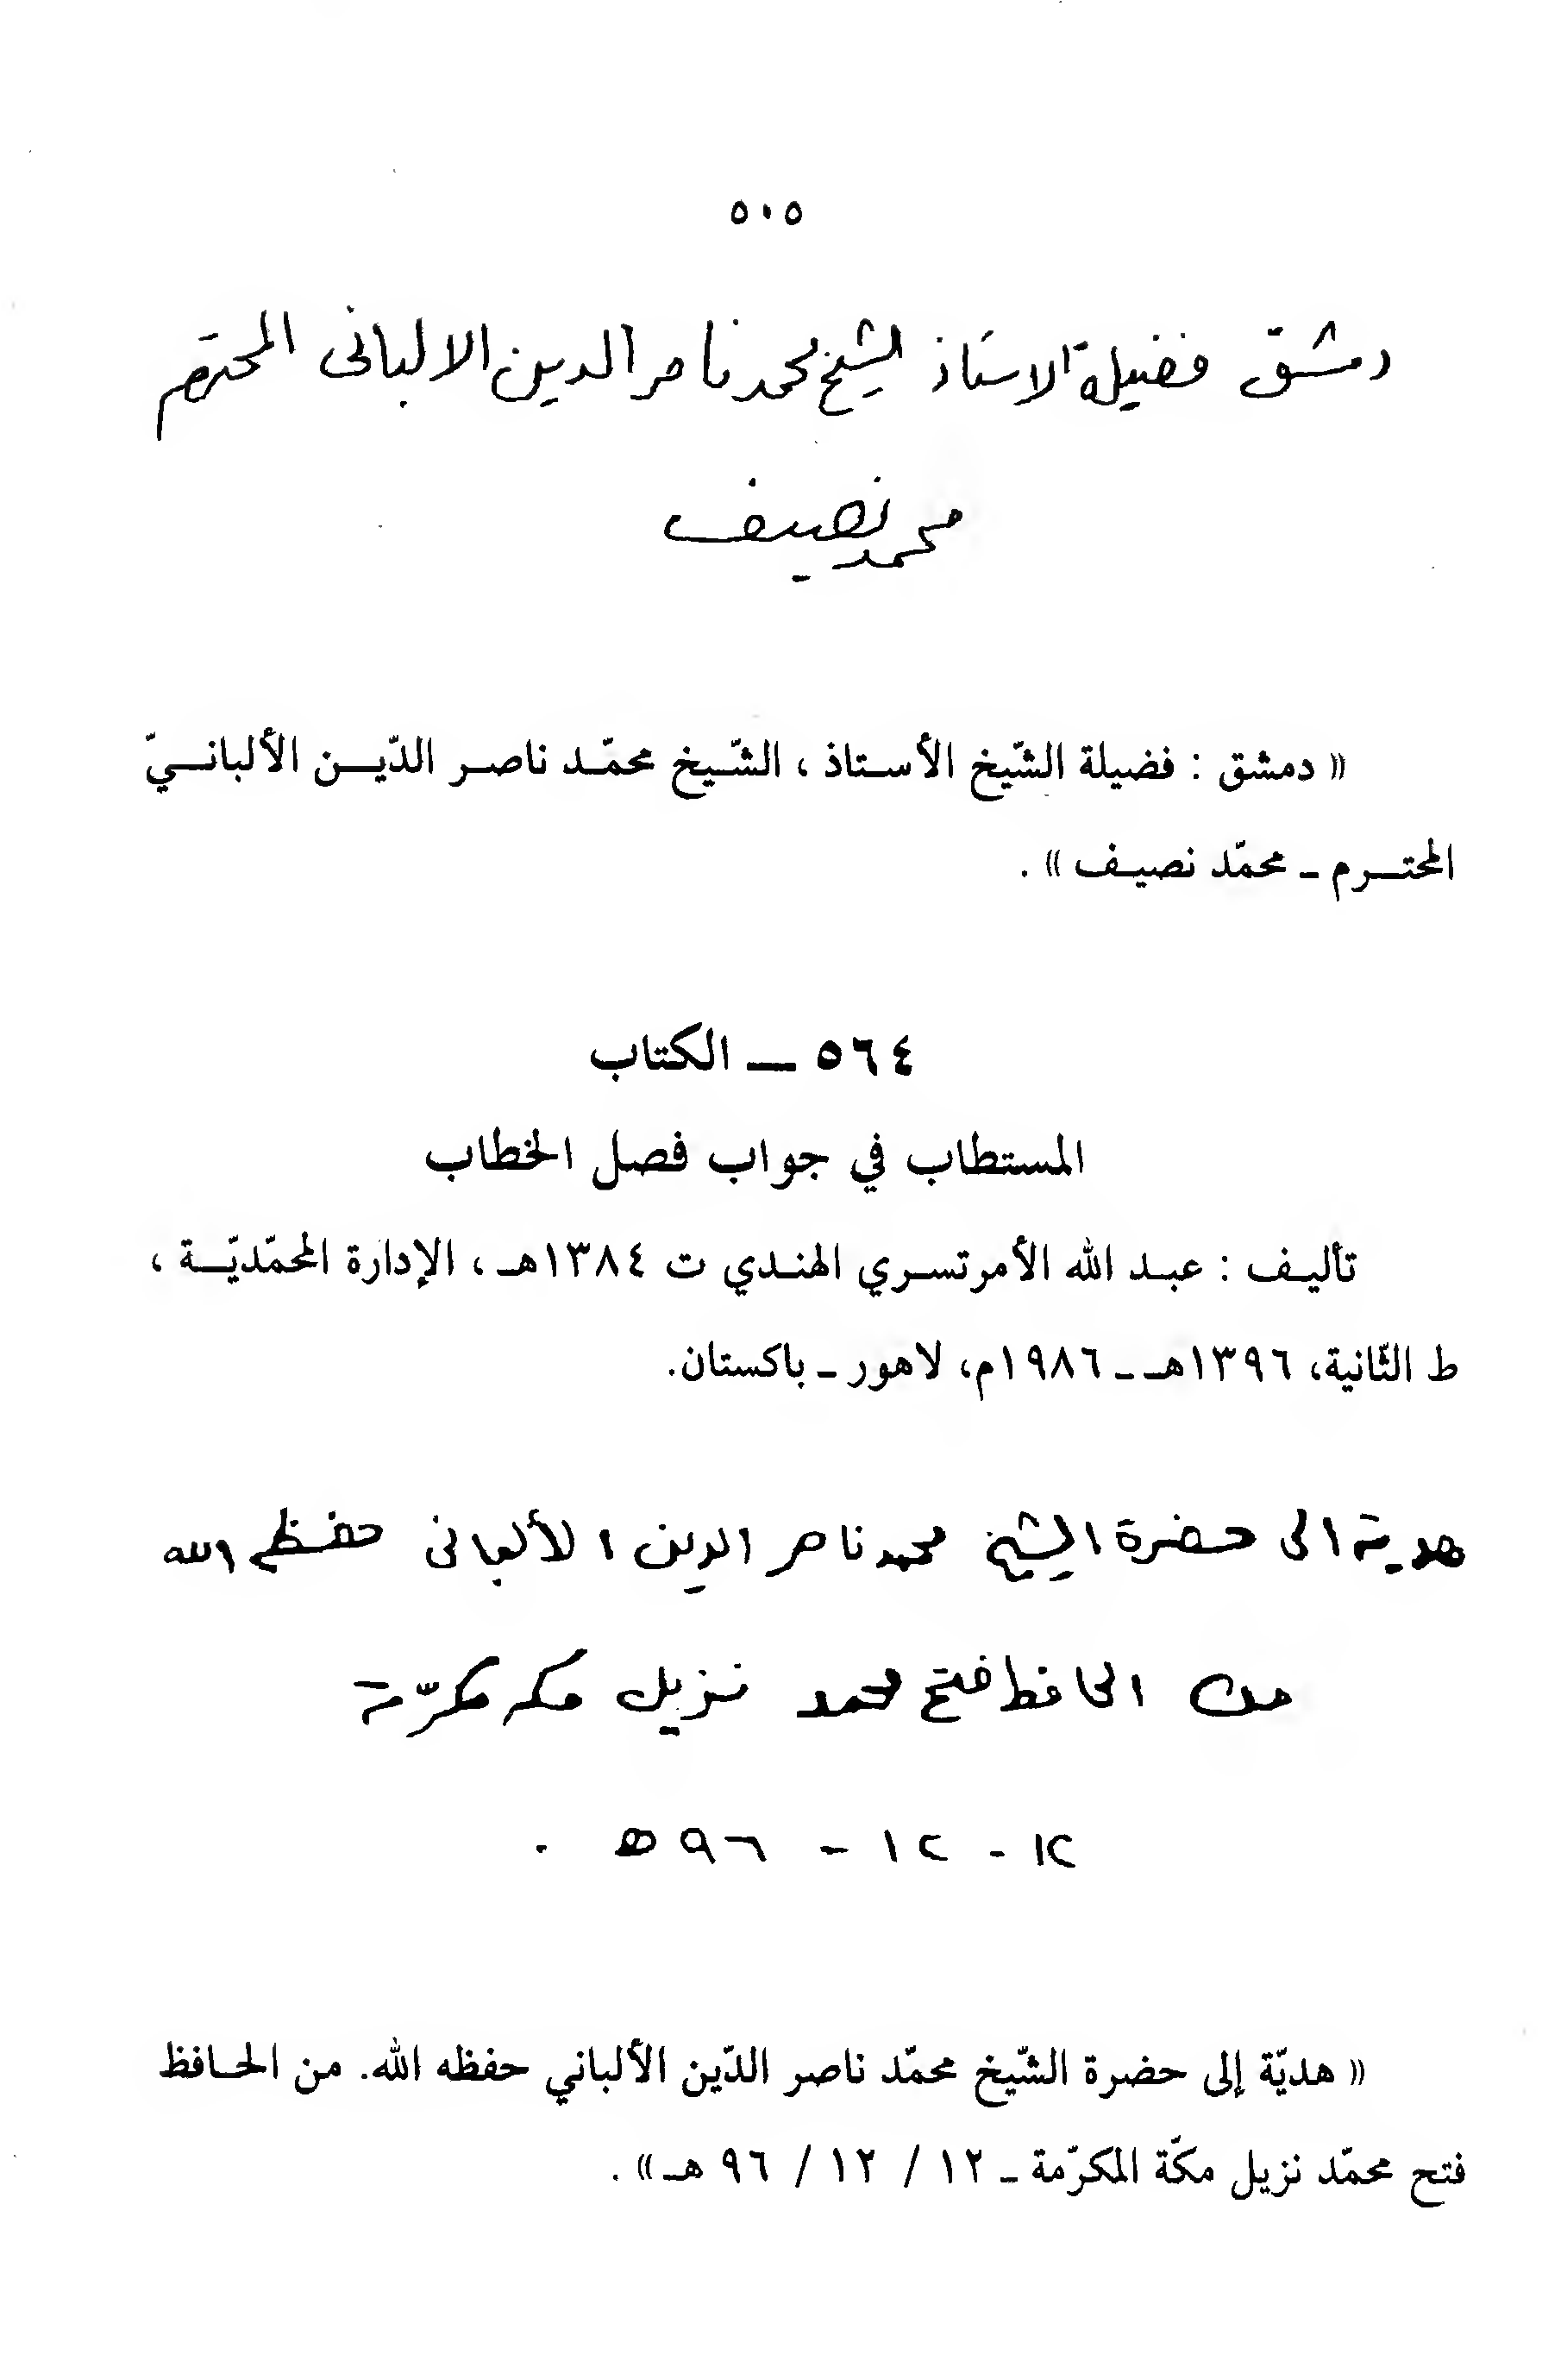 ٥٠٥
دمشق فضيلة الاستاذ الشيخ محمد ناصر الدين الالبانى المحترم
محمد نصيف
« دمشق : فضيلة الشّيخ الأستاذ ، الشّيخ محمّد ناصر الدّين الألبانيّ
المحترم ـ محمّد نصيف » .
٥٦٤ ــ الكتاب
المستطاب في جواب فصل الخطاب
تأليف : عبد الله الأمرتسري الهندي ت ١٣٨٤هـ ، الإدارة المحمّديّة ،
ط الثّانية، ١٣٩٦هـ ـ ١٩٨٦م، لاهور ـ باكستان.
هدية الى حضرة الشيخ محمد ناصر الدين الألبانى حفظه الله
من الحافظ فتح محمد نزيل مكه مكرّمة
١٢ - ١٢ - ٩٦ ه .
« هديّة إلى حضرة الشّيخ محمّد ناصر الدّين الألباني حفظه الله. من الحافظ
فتح محمّد نزيل مكّة المكرّمة ـ ١٢ / ١٢ / ٩٦ هـ» .